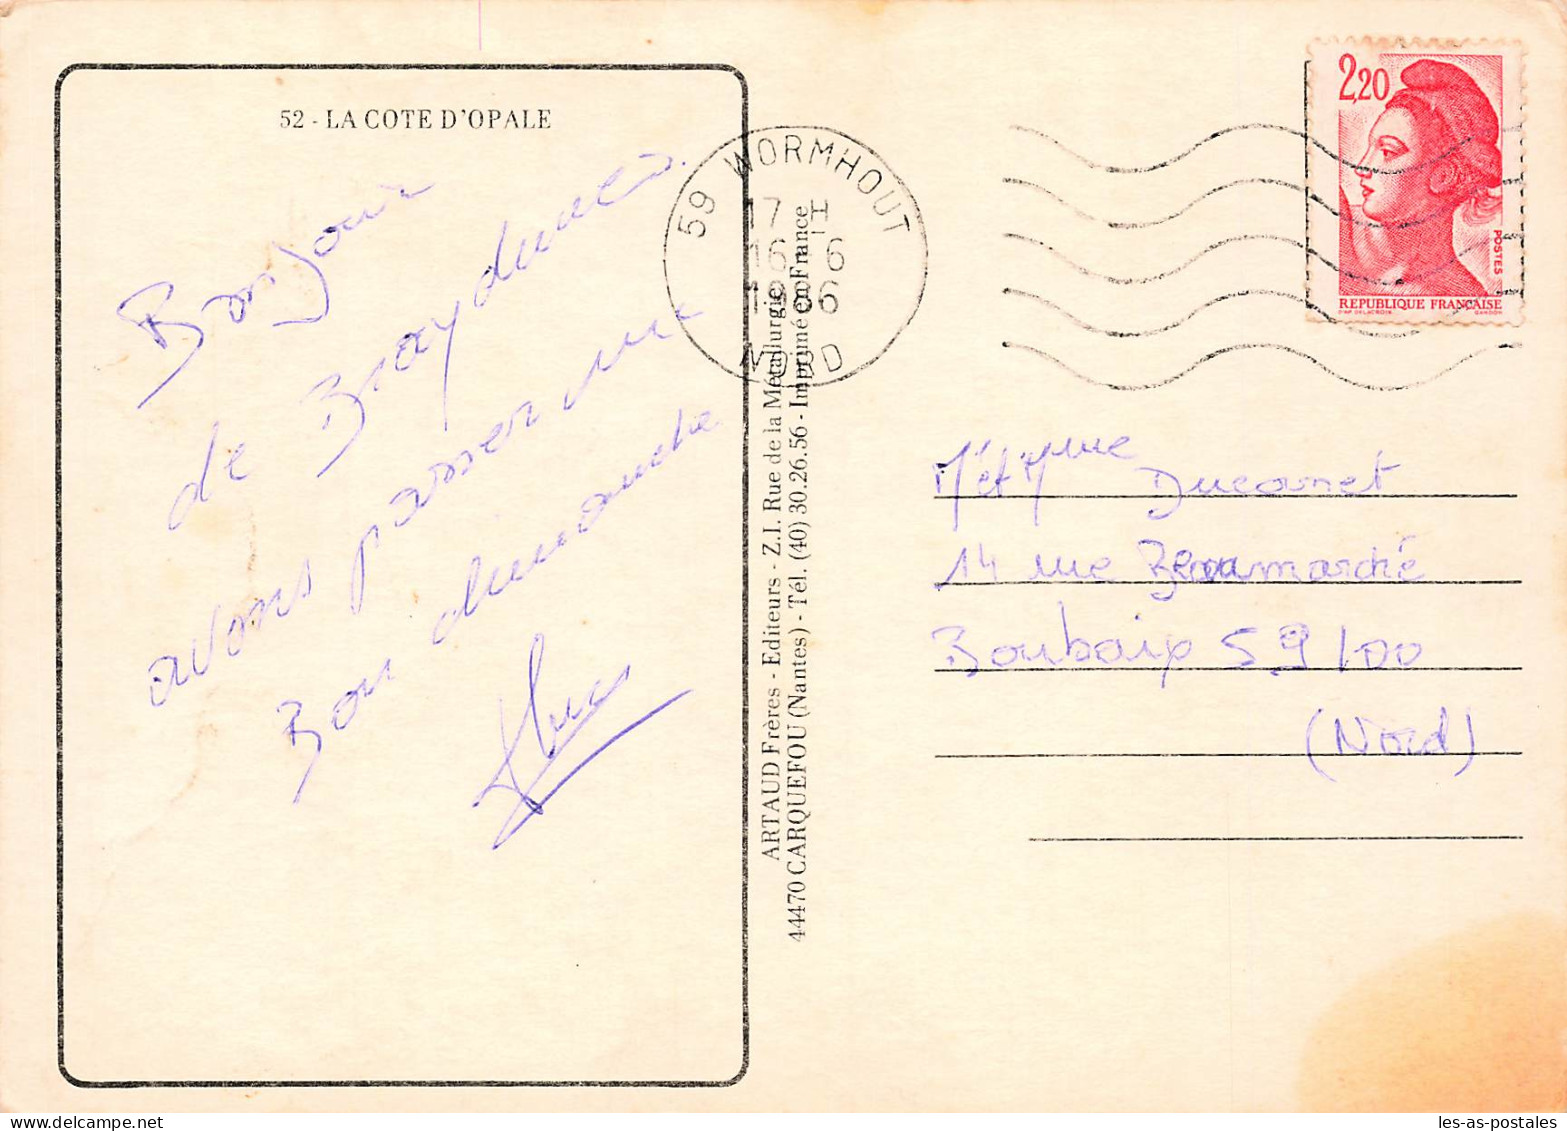 52 - LA COTE D'OPALE
Bonjour
de Braydunes.
avons passer un
Bon dimanche
59 WORMHOUT
17 H
16 - 6
1986
NORD
2,20
POSTES
REPUBLIQUE FRANÇAISE
D'AP DELACROIX GANDON
ARTAUD Frères - Editeurs - Z.I. Rue de la Métallurgie
44470 CARQUEFOU (Nantes) - Tél. (40) 30.26.56 - Imprimé en France
M et Mme Ducarnet
14 rue Beaumarché
Roubaix 59100
(Nord)
les-as-postales
delcampe.net